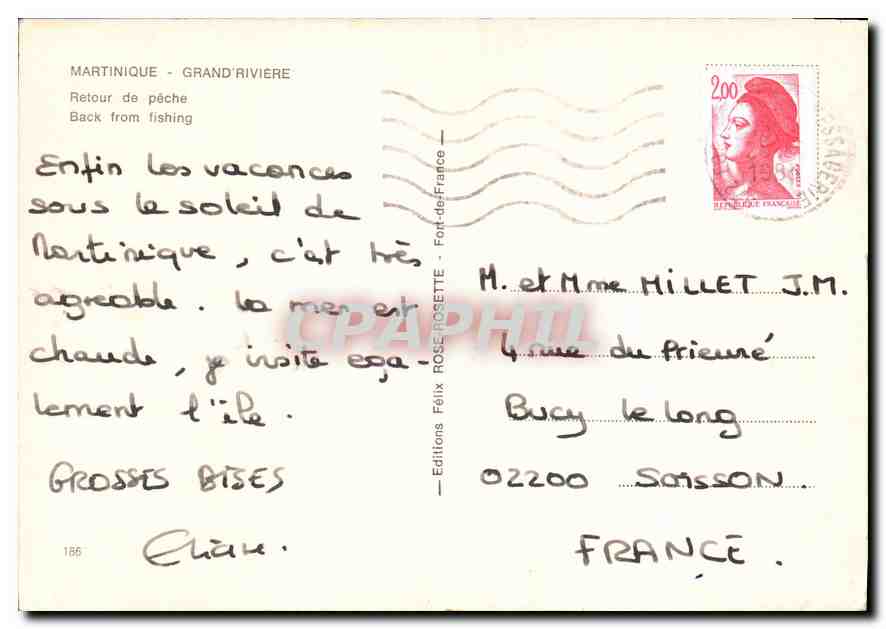 MARTINIQUE - GRAND'RIVIÈRE
Retour de pêche
Back from fishing
Enfin les vacances
sous le soleil de
Martinique, c'est très
agreable. La mer est
chaude, je visite ega-
lement l'île.
GROSSES BISES
186
— Editions Félix ROSE-ROSETTE - Fort-de-France —
2,00
REPUBLIQUE FRANÇAISE
M. et Mme MILLET J.M.
4 rue du Prieuré
Bucy le Long
02200 SOISSON.
FRANCE.
CPAPHIL